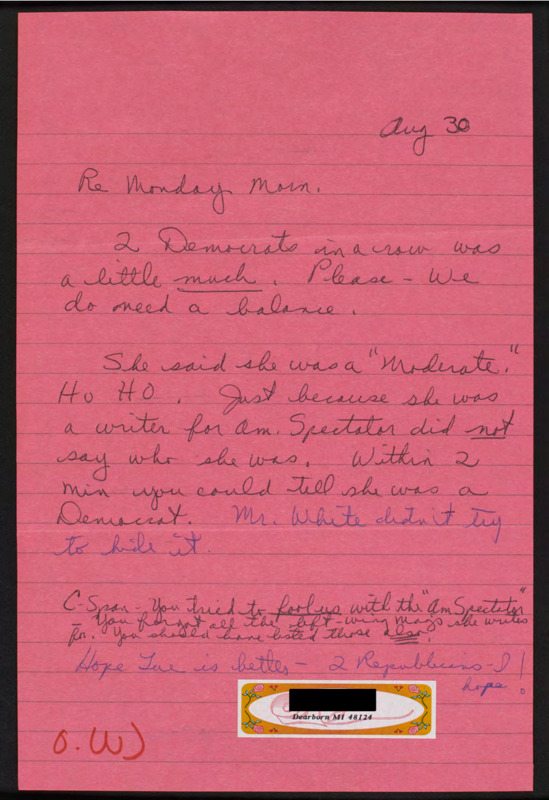 Aug 30
Re Monday Morn.
2 Democrats in a row was
a little much. Please - We
do need a balance.
She said she was a "Moderate."
Ho HO. Just because she was
a writer for Am. Spectator did not
say who she was. Within 2
min you could tell she was a
Democrat. Mr. White didn't try
to hide it.
C-Span - You tried to fool us with the "Am Spectator"
- You forgot all the left-wing mags she writes
for. You should have listed those also.
Hope Tue is better - 2 Republicans - I
hope!
Dearborn MI 48124